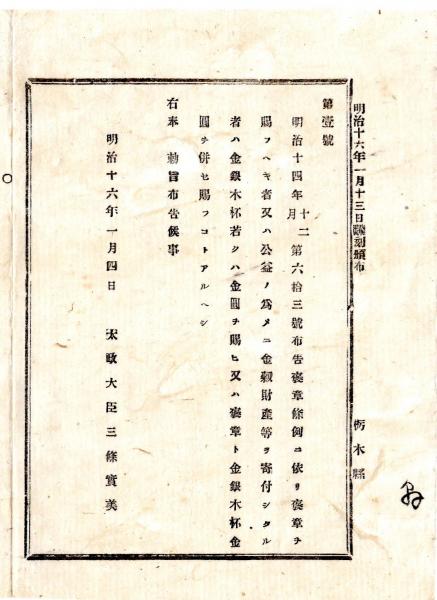 明治十六年一月十三日飜刻頒布
栃木縣
第壹號
明治十四年十二月第六拾三號布告褒章條例ニ依リ褒章ヲ
賜フヘキ者又ハ公益ノ爲メニ金穀財產等ヲ寄付シタル
者ハ金銀木杯若クハ金圓ヲ賜ヒ又ハ褒章ト金銀木杯金
圓ヲ併セ賜フコトアルヘシ
右奉 勅旨布告候事
明治十六年一月四日
太政大臣三條實美